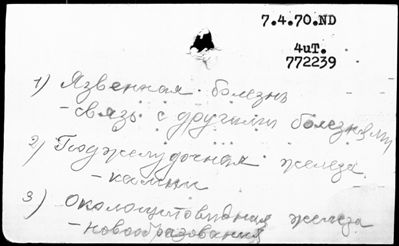 7.4.70.ND
4uT.
772239
1) Язвенная болезнь
- связь с другими болезнями
2) Поджелудочная железа
- камни
3) Околощитовидная железа
- новообразования